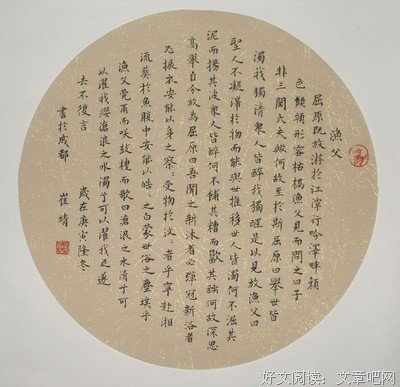 漁父
屈原既放游於江潭行吟澤畔顏
色顦顇形容枯槁漁父見而問之曰子
非三閭大夫歟何故至於斯屈原曰舉世皆
濁我獨清衆人皆醉我獨醒是以見放漁父曰
聖人不凝滯於物而能與世推移世人皆濁何不淈其
泥而揚其波衆人皆醉何不餔其糟而歠其醨何故深思
高舉自令放為屈原曰吾聞之新沐者必彈冠新浴者
必振衣安能以身之察〻受物於汶〻者乎寧赴湘
流葬於魚腹中安能以皓〻之白蒙世俗之塵埃乎
漁父莞爾而咲鼓枻而歌曰滄浪之水清兮可
以濯我纓滄浪之水濁兮可以濯我足遂
去不復言 歲在庚寅隆冬
書於成都 崔靖
好文阅读：文章吧网